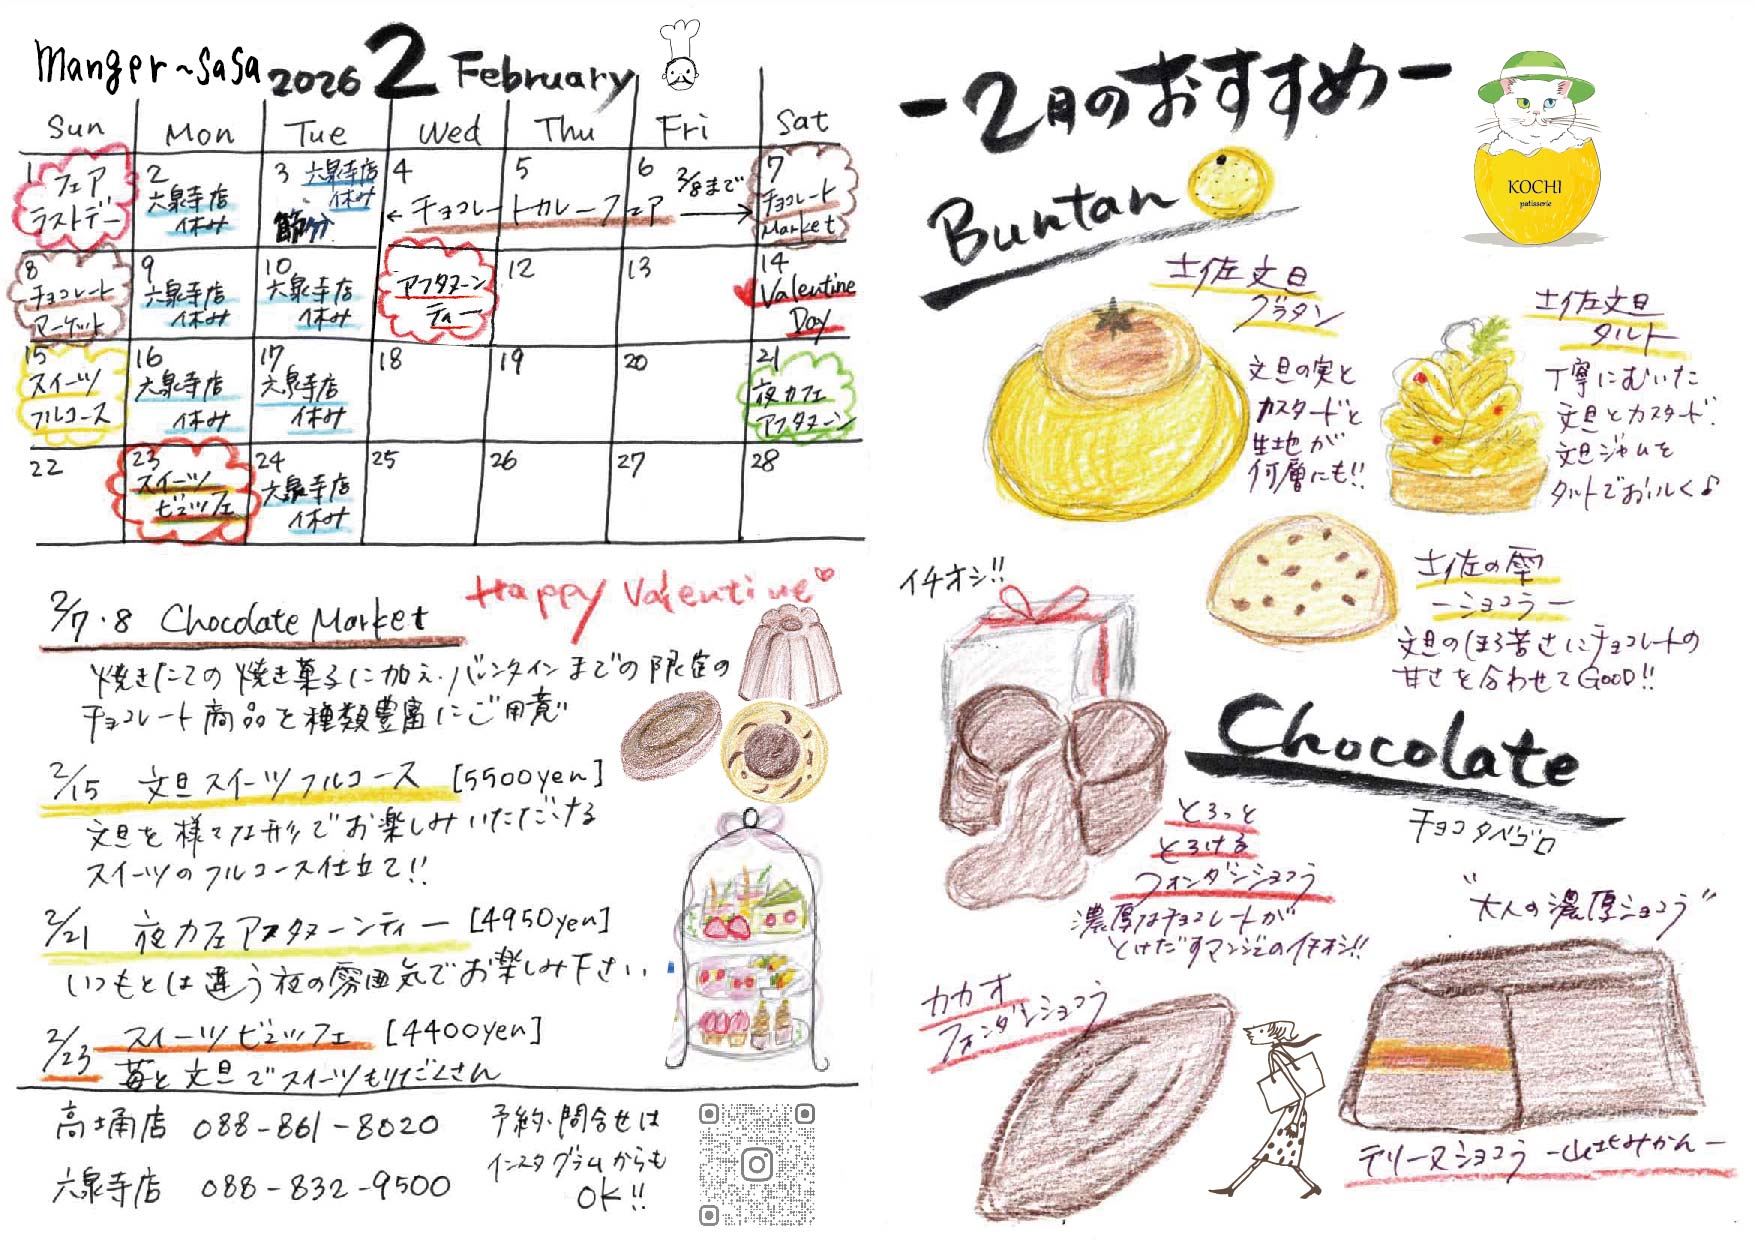 Manger~SaSa 2026 2 February
Sun Mon Tue Wed Thu Fri Sat
1 フェア
ラストデー
2
六泉寺店
休み
3 六泉寺店
休み
節分
4 5 6 2/8まで
←チョコレートカレーフェア→
7
チョコレート
Market
8
チョコレート
マーケット
9
六泉寺店
休み
10
六泉寺店
休み
アフタヌーン
ティー
12
13
14
Valentine
Day
15
スイーツ
フルコース
16
六泉寺店
休み
17
六泉寺店
休み
18
19
20
21
夜カフェ
アフタヌーン
22
23
スイーツ
ビュッフェ
24
六泉寺店
休み
25
26
27
28
Happy Valentine
2/7・8 Chocolate Market
焼きたての焼き菓子に加え、バレンタインまでの限定の
チョコレート商品を種類豊富にご用意
2/15 文旦スイーツフルコース [5500yen]
文旦を様々な形でお楽しみいただける
スイーツのフルコース仕立て!!
2/21 夜カフェアフタヌーンティー [4950yen]
いつもとは違う夜の雰囲気でお楽しみ下さい
2/23 スイーツビュッフェ [4400yen]
苺と文旦でスイーツもりだくさん
高埇店 088-861-8020
六泉寺店 088-832-9500
予約・問合せは
インスタグラムからも
OK!!
-2月のおすすめ-
KOCHI
patisserie
Buntan
土佐文旦
グラタン
文旦の実と
カスタードと
生地が
何層にも!!
土佐文旦
タルト
丁寧にむいた
文旦とカスタード、
文旦ジャムを
タルトでおいしく♪
土佐の雫
-ショコラ-
文旦のほろ苦さにチョコレートの
甘さを合わせてGOOD!!
イチオシ!!
Chocolate
チョコタベゴロ
とろっと
とろける
フォンダンショコラ
濃厚なチョコレートが
とけだすマンジェのイチオシ!!
"大人の濃厚ショコラ"
カカオ
フォンダンショコラ
テリーヌショコラ -山北みかん-